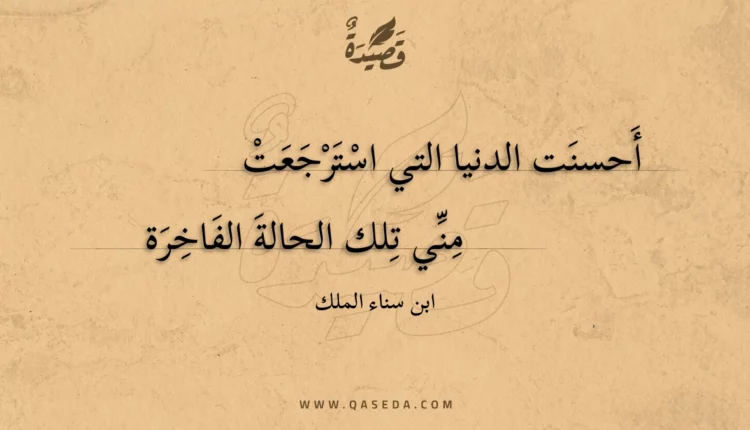 قَصِيْدَةٌ
أَحسنَت الدنيا التي اسْتَرْجَعَتْ
مِنِّي تِلك الحالةَ الفَاخِرَة
ابن سناء الملك
WWW.QASEDA.COM